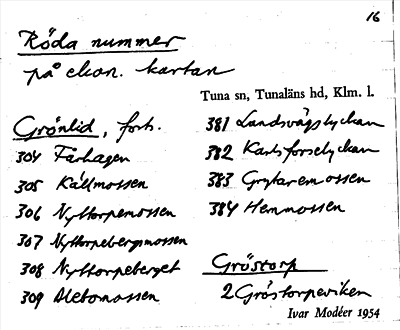 16
Röda nummer
på ekon. kartan
Tuna sn, Tunaläns hd, Klm. l.
Grönlid, forts.
304 Fårhagen
305 Källmossen
306 Nyttorpemossen
307 Nyttorpebergmossen
308 Nyttorpeberget
309 Aletomossen
381 Landsvägslyckan
382 Karlsforselyckan
383 Grytaremossen
384 Hemmossen
Gröstorp
2 Gröstorpeviken
Ivar Modéer 1954